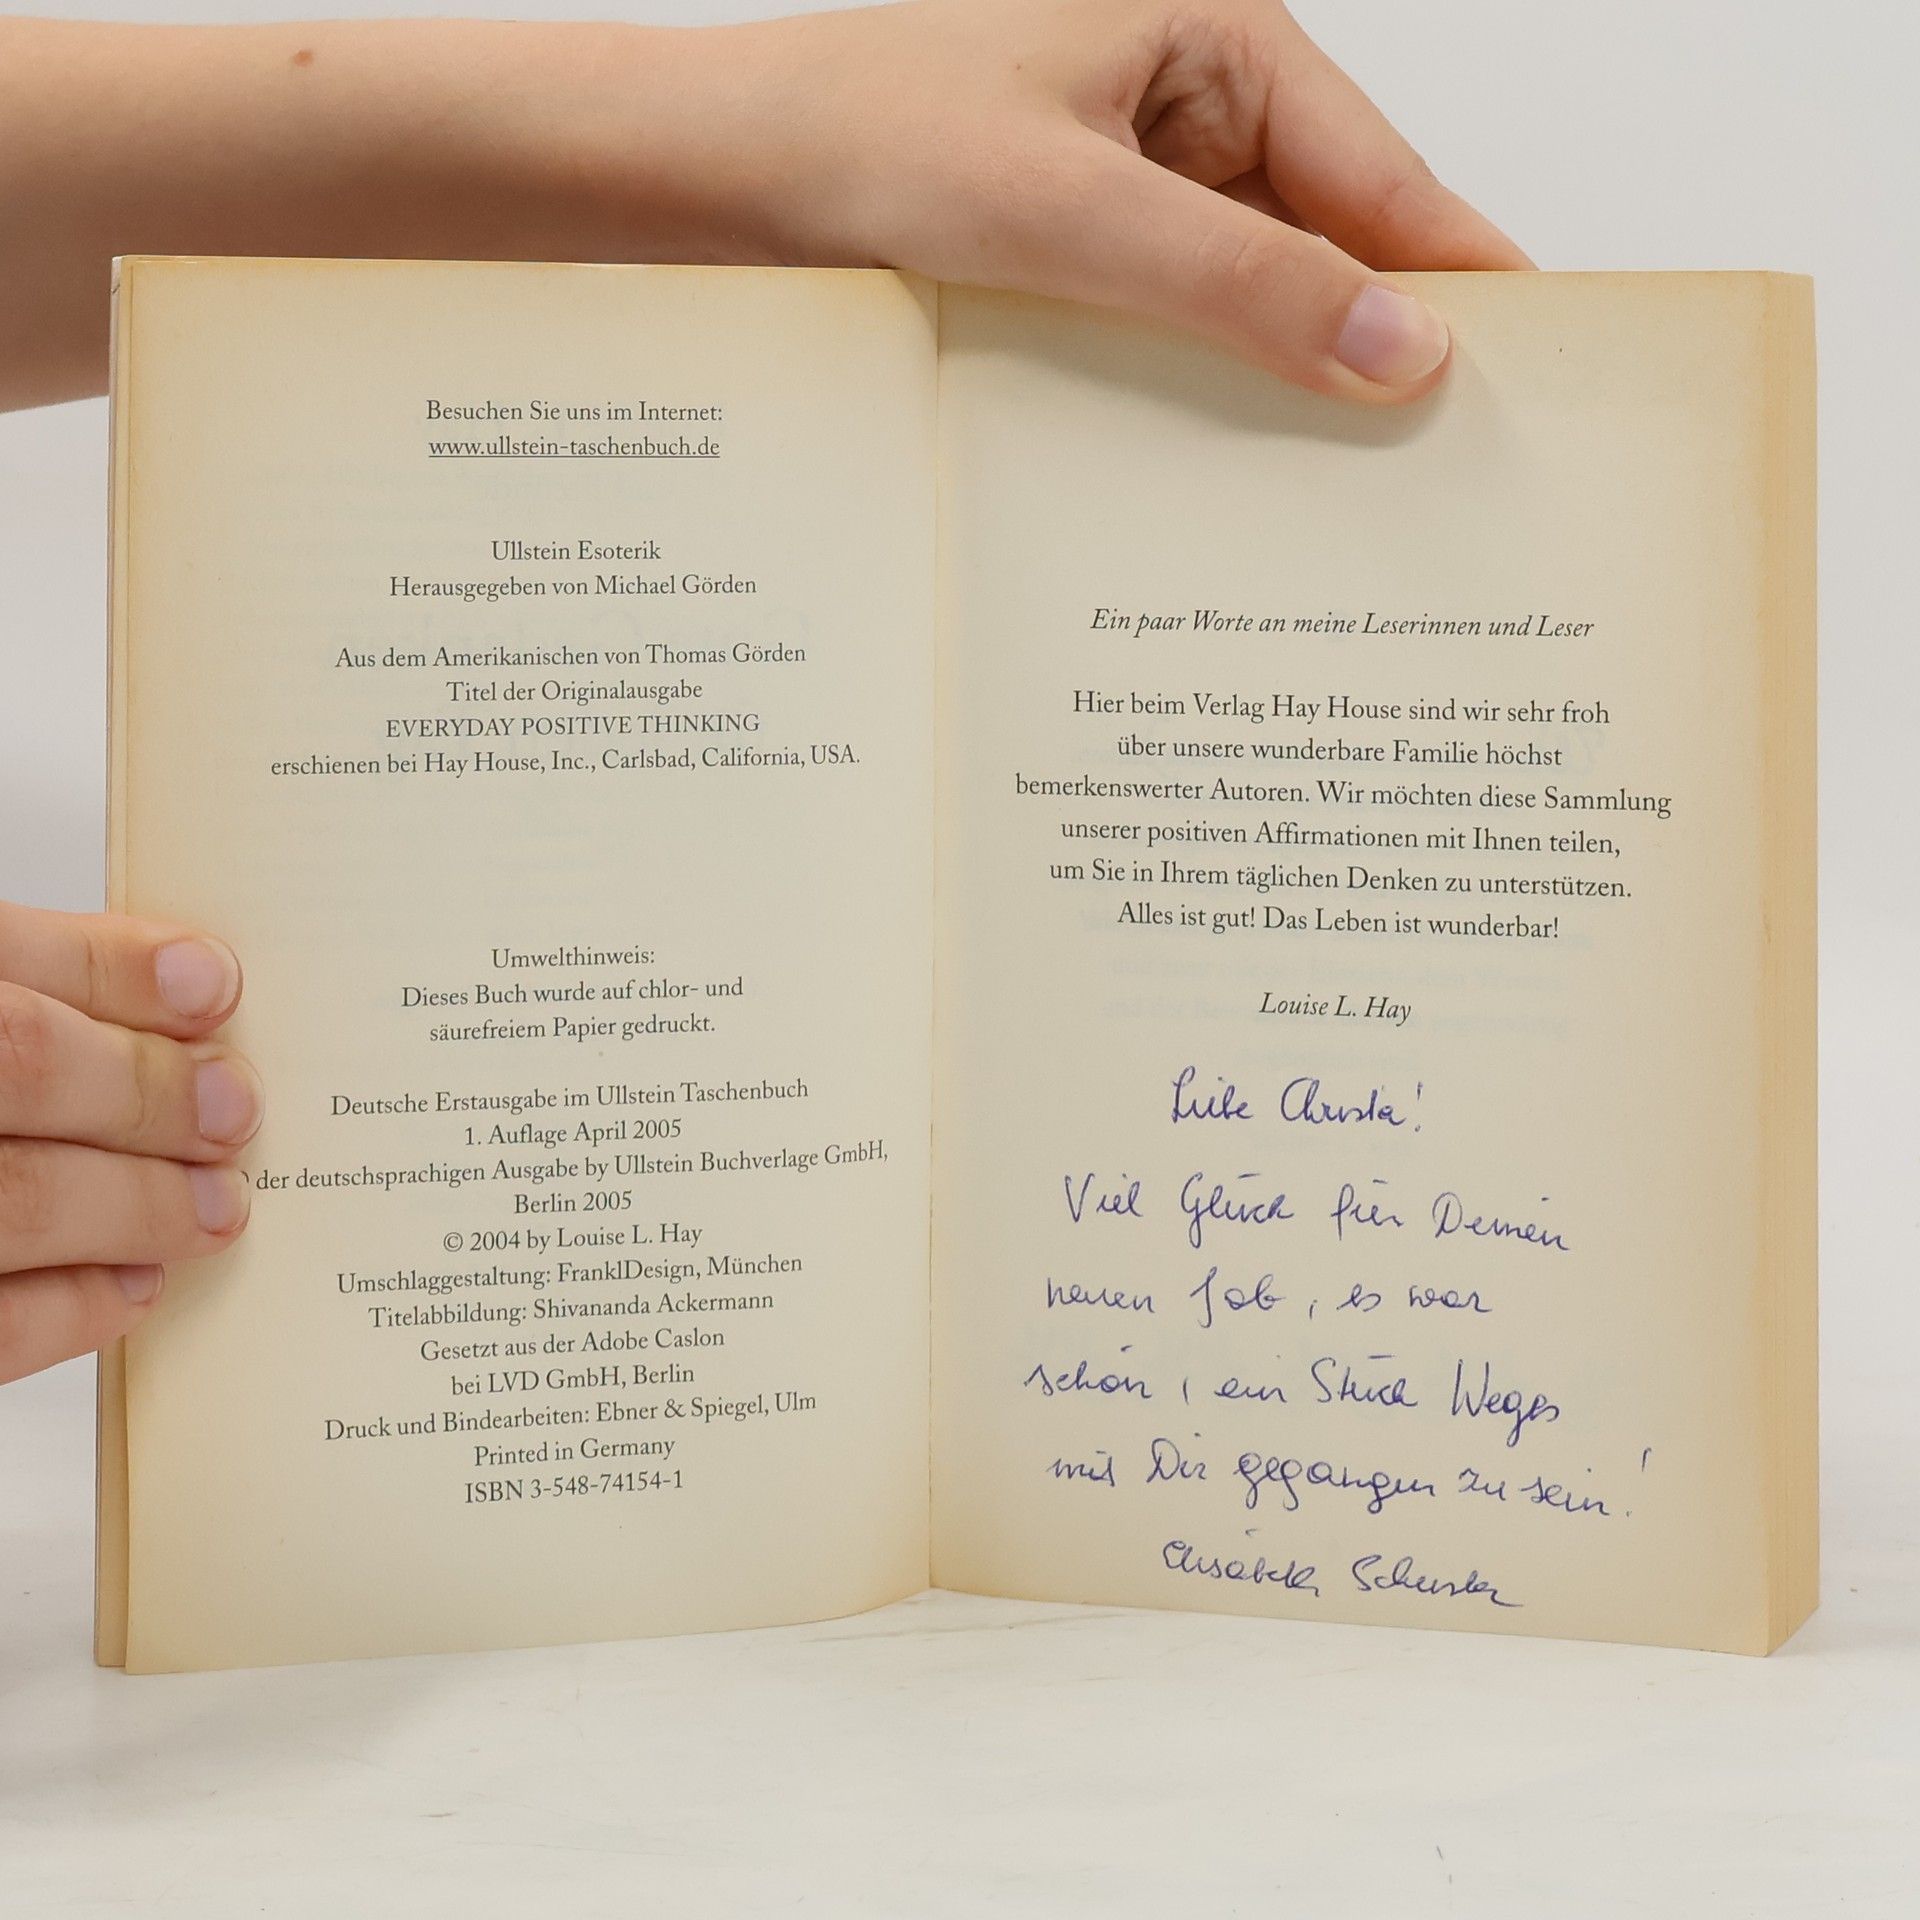 Besuchen Sie uns im Internet:
www.ullstein-taschenbuch.de
Ullstein Esoterik
Herausgegeben von Michael Görden
Aus dem Amerikanischen von Thomas Görden
Titel der Originalausgabe
EVERYDAY POSITIVE THINKING
erschienen bei Hay House, Inc., Carlsbad, California, USA.
Umwelthinweis:
Dieses Buch wurde auf chlor- und
säurefreiem Papier gedruckt.
Deutsche Erstausgabe im Ullstein Taschenbuch
1. Auflage April 2005
der deutschsprachigen Ausgabe by Ullstein Buchverlage GmbH,
Berlin 2005
© 2004 by Louise L. Hay
Umschlaggestaltung: FranklDesign, München
Titelabbildung: Shivananda Ackermann
Gesetzt aus der Adobe Caslon
bei LVD GmbH, Berlin
Druck und Bindearbeiten: Ebner & Spiegel, Ulm
Printed in Germany
ISBN 3-548-74154-1
Ein paar Worte an meine Leserinnen und Leser
Hier beim Verlag Hay House sind wir sehr froh
über unsere wunderbare Familie höchst
bemerkenswerter Autoren. Wir möchten diese Sammlung
unserer positiven Affirmationen mit Ihnen teilen,
um Sie in Ihrem täglichen Denken zu unterstützen.
Alles ist gut! Das Leben ist wunderbar!
Louise L. Hay
Liebe Christa!
Viel Glück für Deinen
neuen Job, es war
schön, ein Stück Weges
mit Dir gegangen zu sein!
Elisabeth Schuster